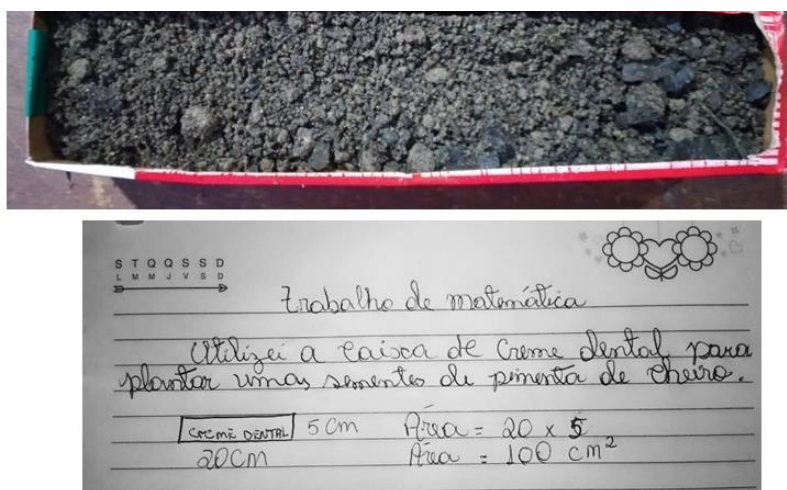 S T Q Q S S D
L M M J V S D
Trabalho de matemática
Utilizei a caixa de creme dental para
plantar umas sementes de pimenta de cheiro.
CREME DENTAL 5 cm Área = 20 x 5
20CM Área = 100 cm²